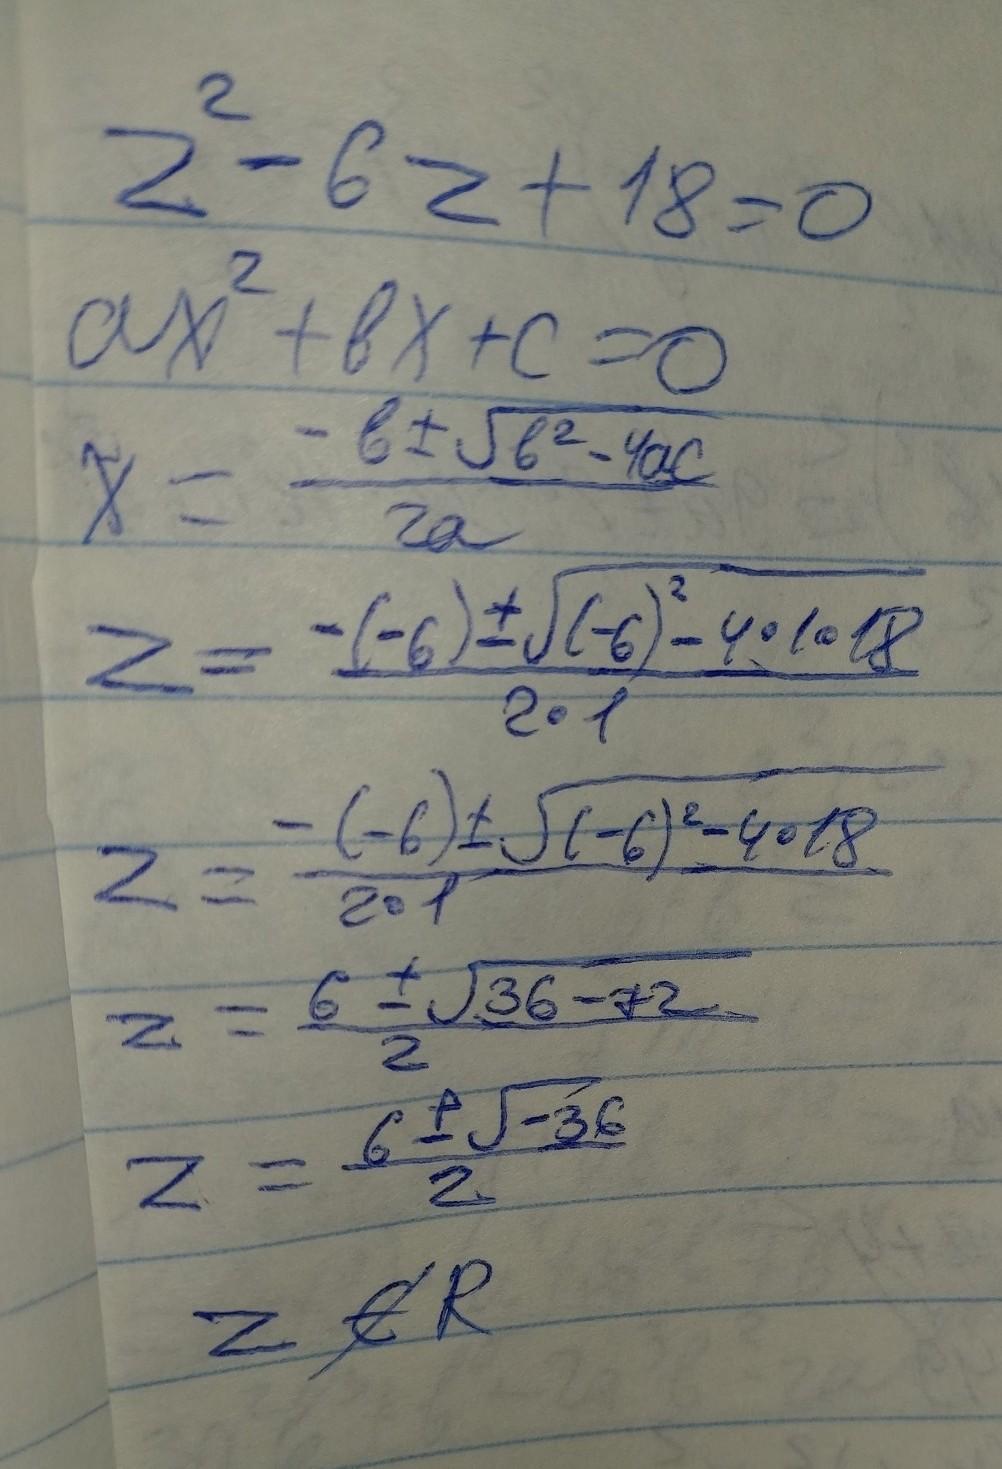 z² - 6z + 18 = 0
ax² + bx + c = 0
x = (-b ± √(b² - 4ac)) / 2a
z = (-(-6) ± √((-6)² - 4•1•18)) / 2•1
z = (-(-6) ± √((-6)² - 4•18)) / 2•1
z = (6 ± √(36 - 72)) / 2
z = (6 ± √(-36)) / 2
z ∉ R